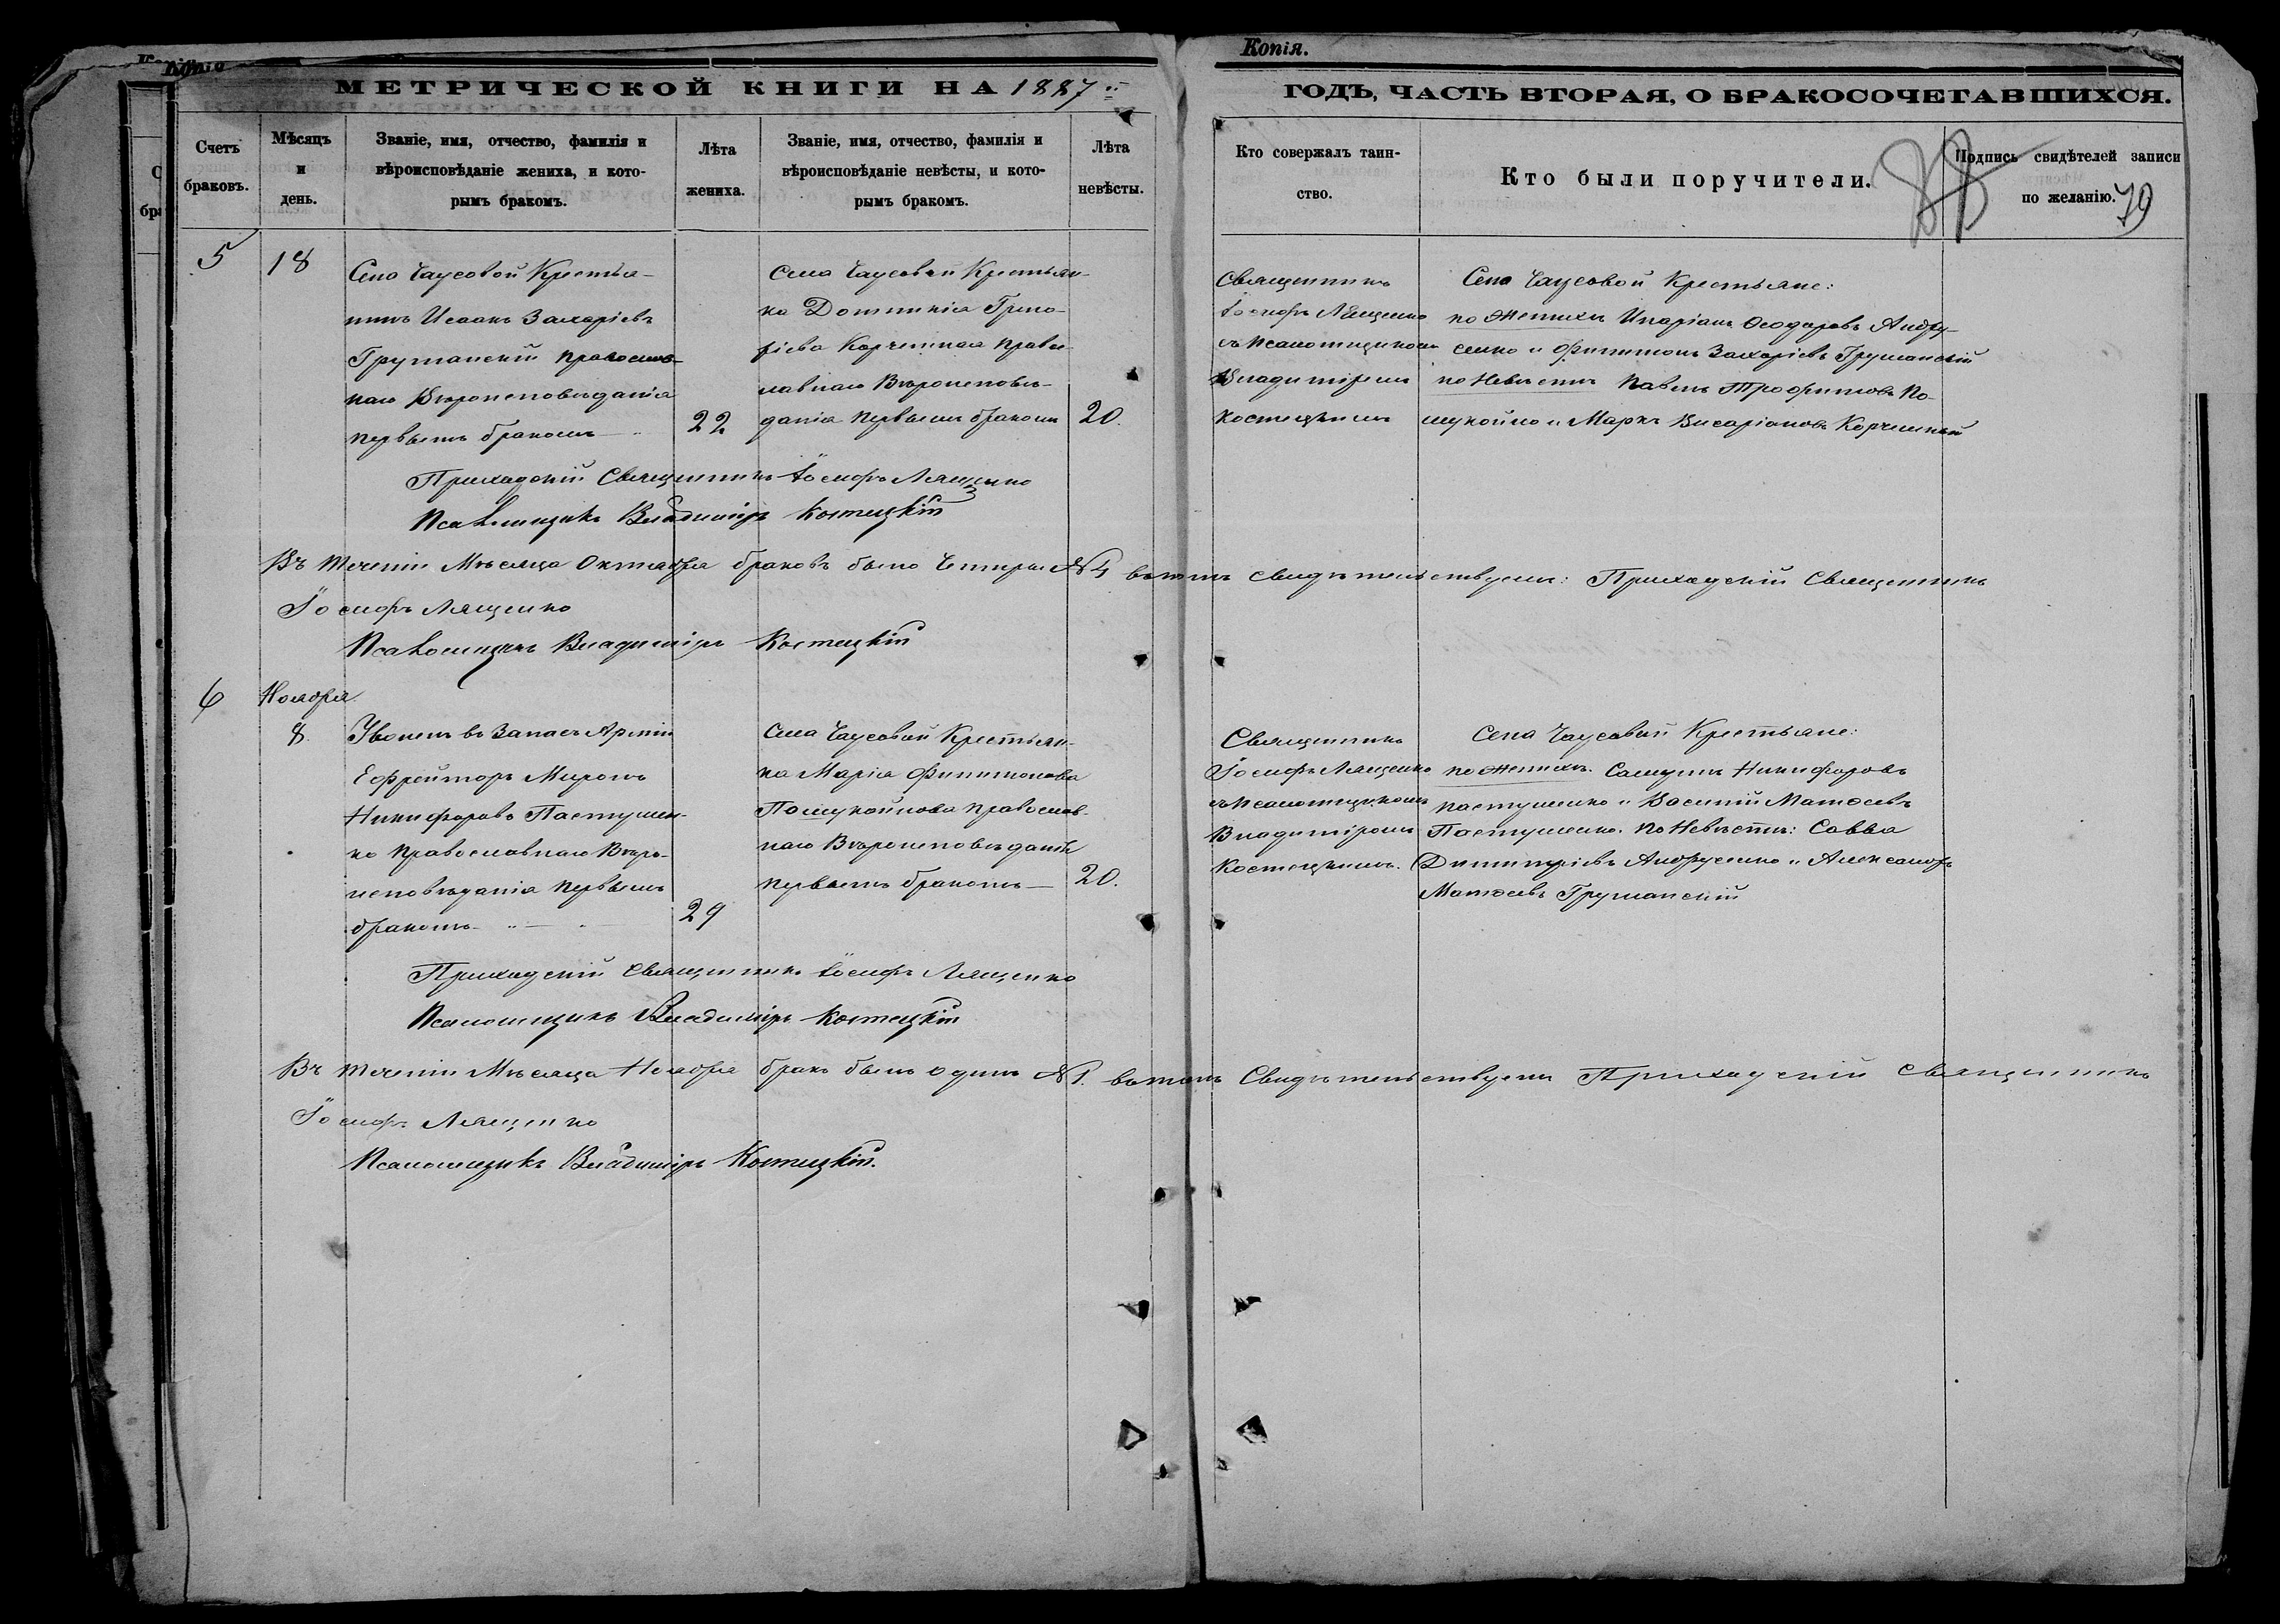 Копія.
МЕТРИЧЕСКОЙ КНИГИ НА 1887
ГОДЪ, ЧАСТЬ ВТОРАЯ, О БРАКОСОЧЕТАВШИХСЯ.
Счетъ браковъ.
Мѣсяцъ и день.
Званіе, имя, отчество, фамилія и
вѣроисповѣданіе жениха, и кото-
рымъ бракомъ.
Лѣта жениха.
Званіе, имя, отчество, фамилія и
вѣроисповѣданіе невѣсты, и кото-
рымъ бракомъ.
Лѣта невѣсты.
Кто совержалъ таин-
ство.
Кто были поручители.
Подпись свидѣтелей записи
по желанію.
79
5
18
Села Чаусовой Крестья-
нинъ Исаакъ Захаріевъ
Грушанскій православ-
наго Вѣроисповѣданія
первымъ бракомъ
22
Села Чаусовой Крестьян-
ка Домникія Григо-
ріева Корчемная Правос-
лавнаго Вѣроисповѣ-
данія первымъ бракомъ
20.
Священникъ
Іосифъ Лященко
съ псаломщикомъ
Владиміромъ
Костецкимъ
Села Чаусовой Крестьяне:
по женихѣ Иларіонъ Ѳеодоровъ Андру-
сенко и Филимонъ Захаріевъ Грушанскій
по Невѣстѣ Павелъ Трофимовъ По-
шукойло и Маркъ Висаріоновъ Корчемный
Приходскій Священникъ Іосифъ Лященко
Псаломщикъ Владиміръ Костецкій
Въ теченіи Мѣсяца Октября браковъ было Четыре №4 вътомъ Свидѣтельствуемъ: Приходскій Священникъ
Іосифъ Лященко
Псаломщикъ Владиміръ Костецкій
6
Ноября
8.
Уволен въ Запасъ Арміи
Ефрейторъ Миронъ
Никифоровъ Пастушен-
ко Православнаго Вѣро-
исповѣданія первымъ
бракомъ
29
Села Чаусовой Крестьян-
ка Марія Филимонова
Пошукойлова Православ-
наго Вѣроисповѣданія
первымъ бракомъ
20.
Священникъ
Іосифъ Лященко
съ псаломщикомъ
Владиміромъ
Костецкимъ.
Села Чаусовой Крестьяне:
по женихѣ. Самуилъ Никифоровъ
Пастушенко и Василій Матѳеевъ
Пастушенко. По Невѣстѣ: Савва
Димитріевъ Андрусенко и Александръ
Матѳеевъ Грушанскій
Приходскій Священникъ Іосифъ Лященко
Псаломщикъ Владиміръ Костецкій
Въ теченіи Мѣсяца Ноября бракъ былъ одинъ №1. вътомъ Свидѣтельствуемъ Приходскій Священникъ
Іосифъ Лященко
Псаломщикъ Владиміръ Костецкій.